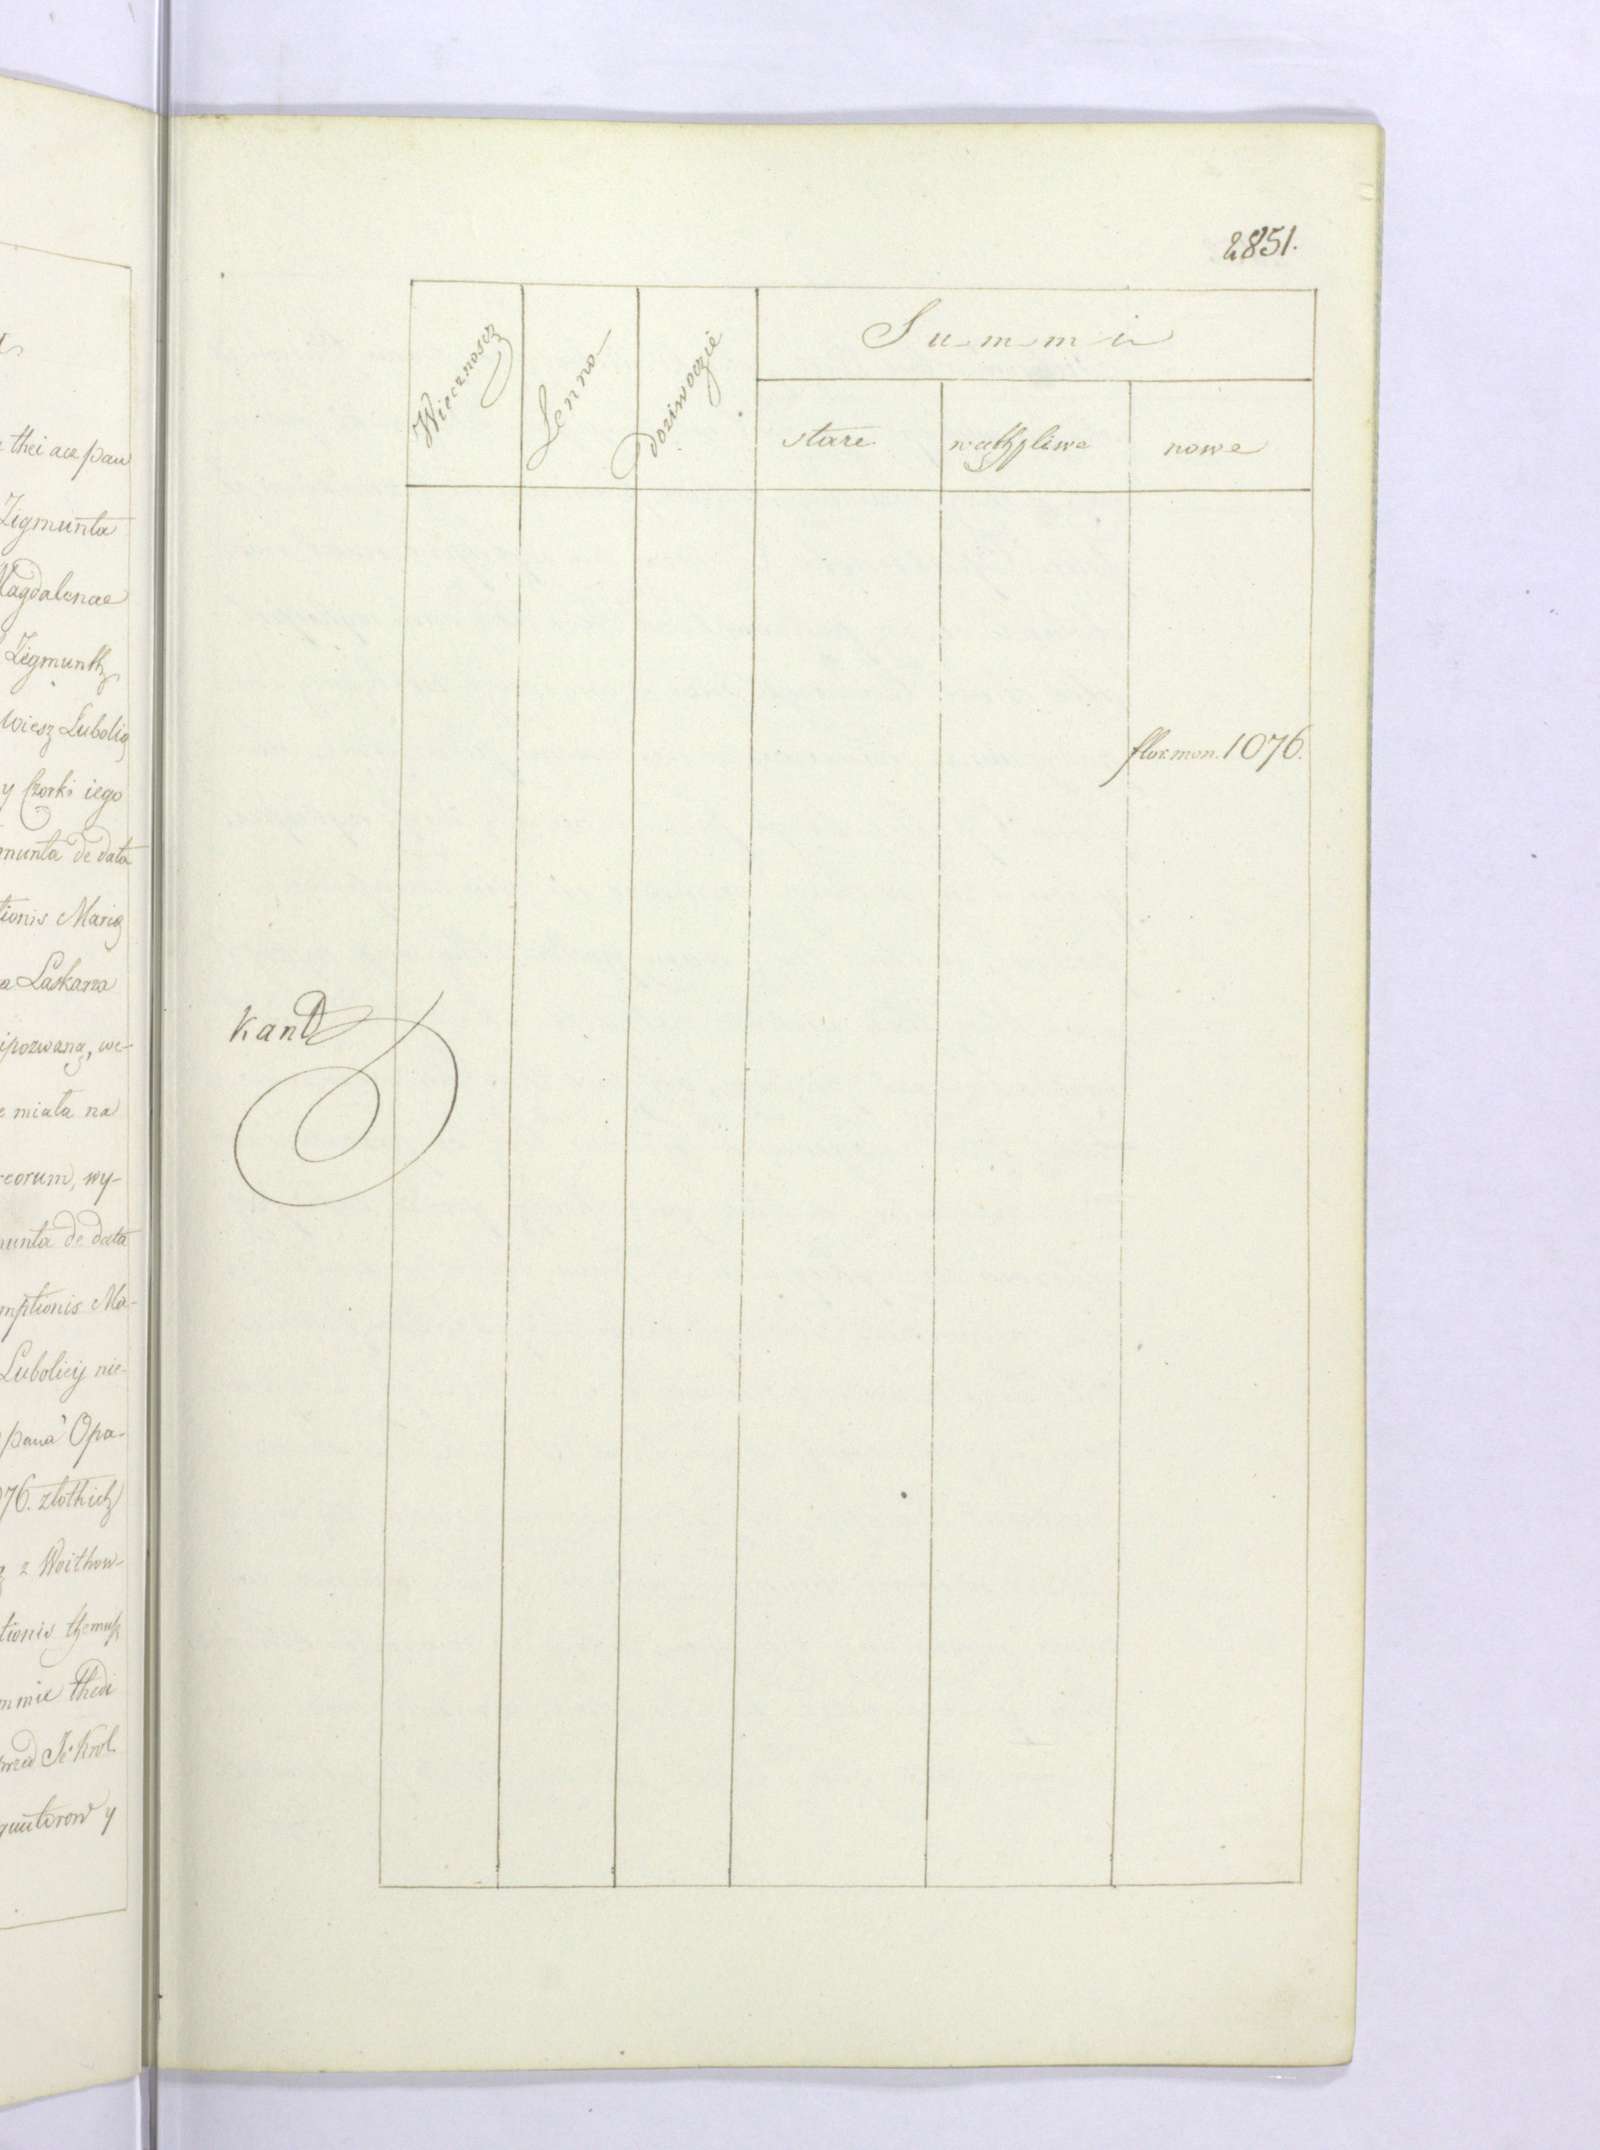 thei ace pan
Zigmunta
Magdalenae
Zigmunth
wiesz Lubolią
y Czorki iego
munta de data
tionis Marię
a Laskawa
ipozwaną, we-
e miała na
reorum, wy-
munta de data
mptionis Ma-
Luboliey nie-
pana Opa-
76. złothich
z Woithow-
tionis themusz
mmie thedi
Je Krol
y
2851.
Wiecznoscz
Lenno
Doziwoczie
Summi
stare
wathpliwe
nowe
flor. mon. 1076.
Kand